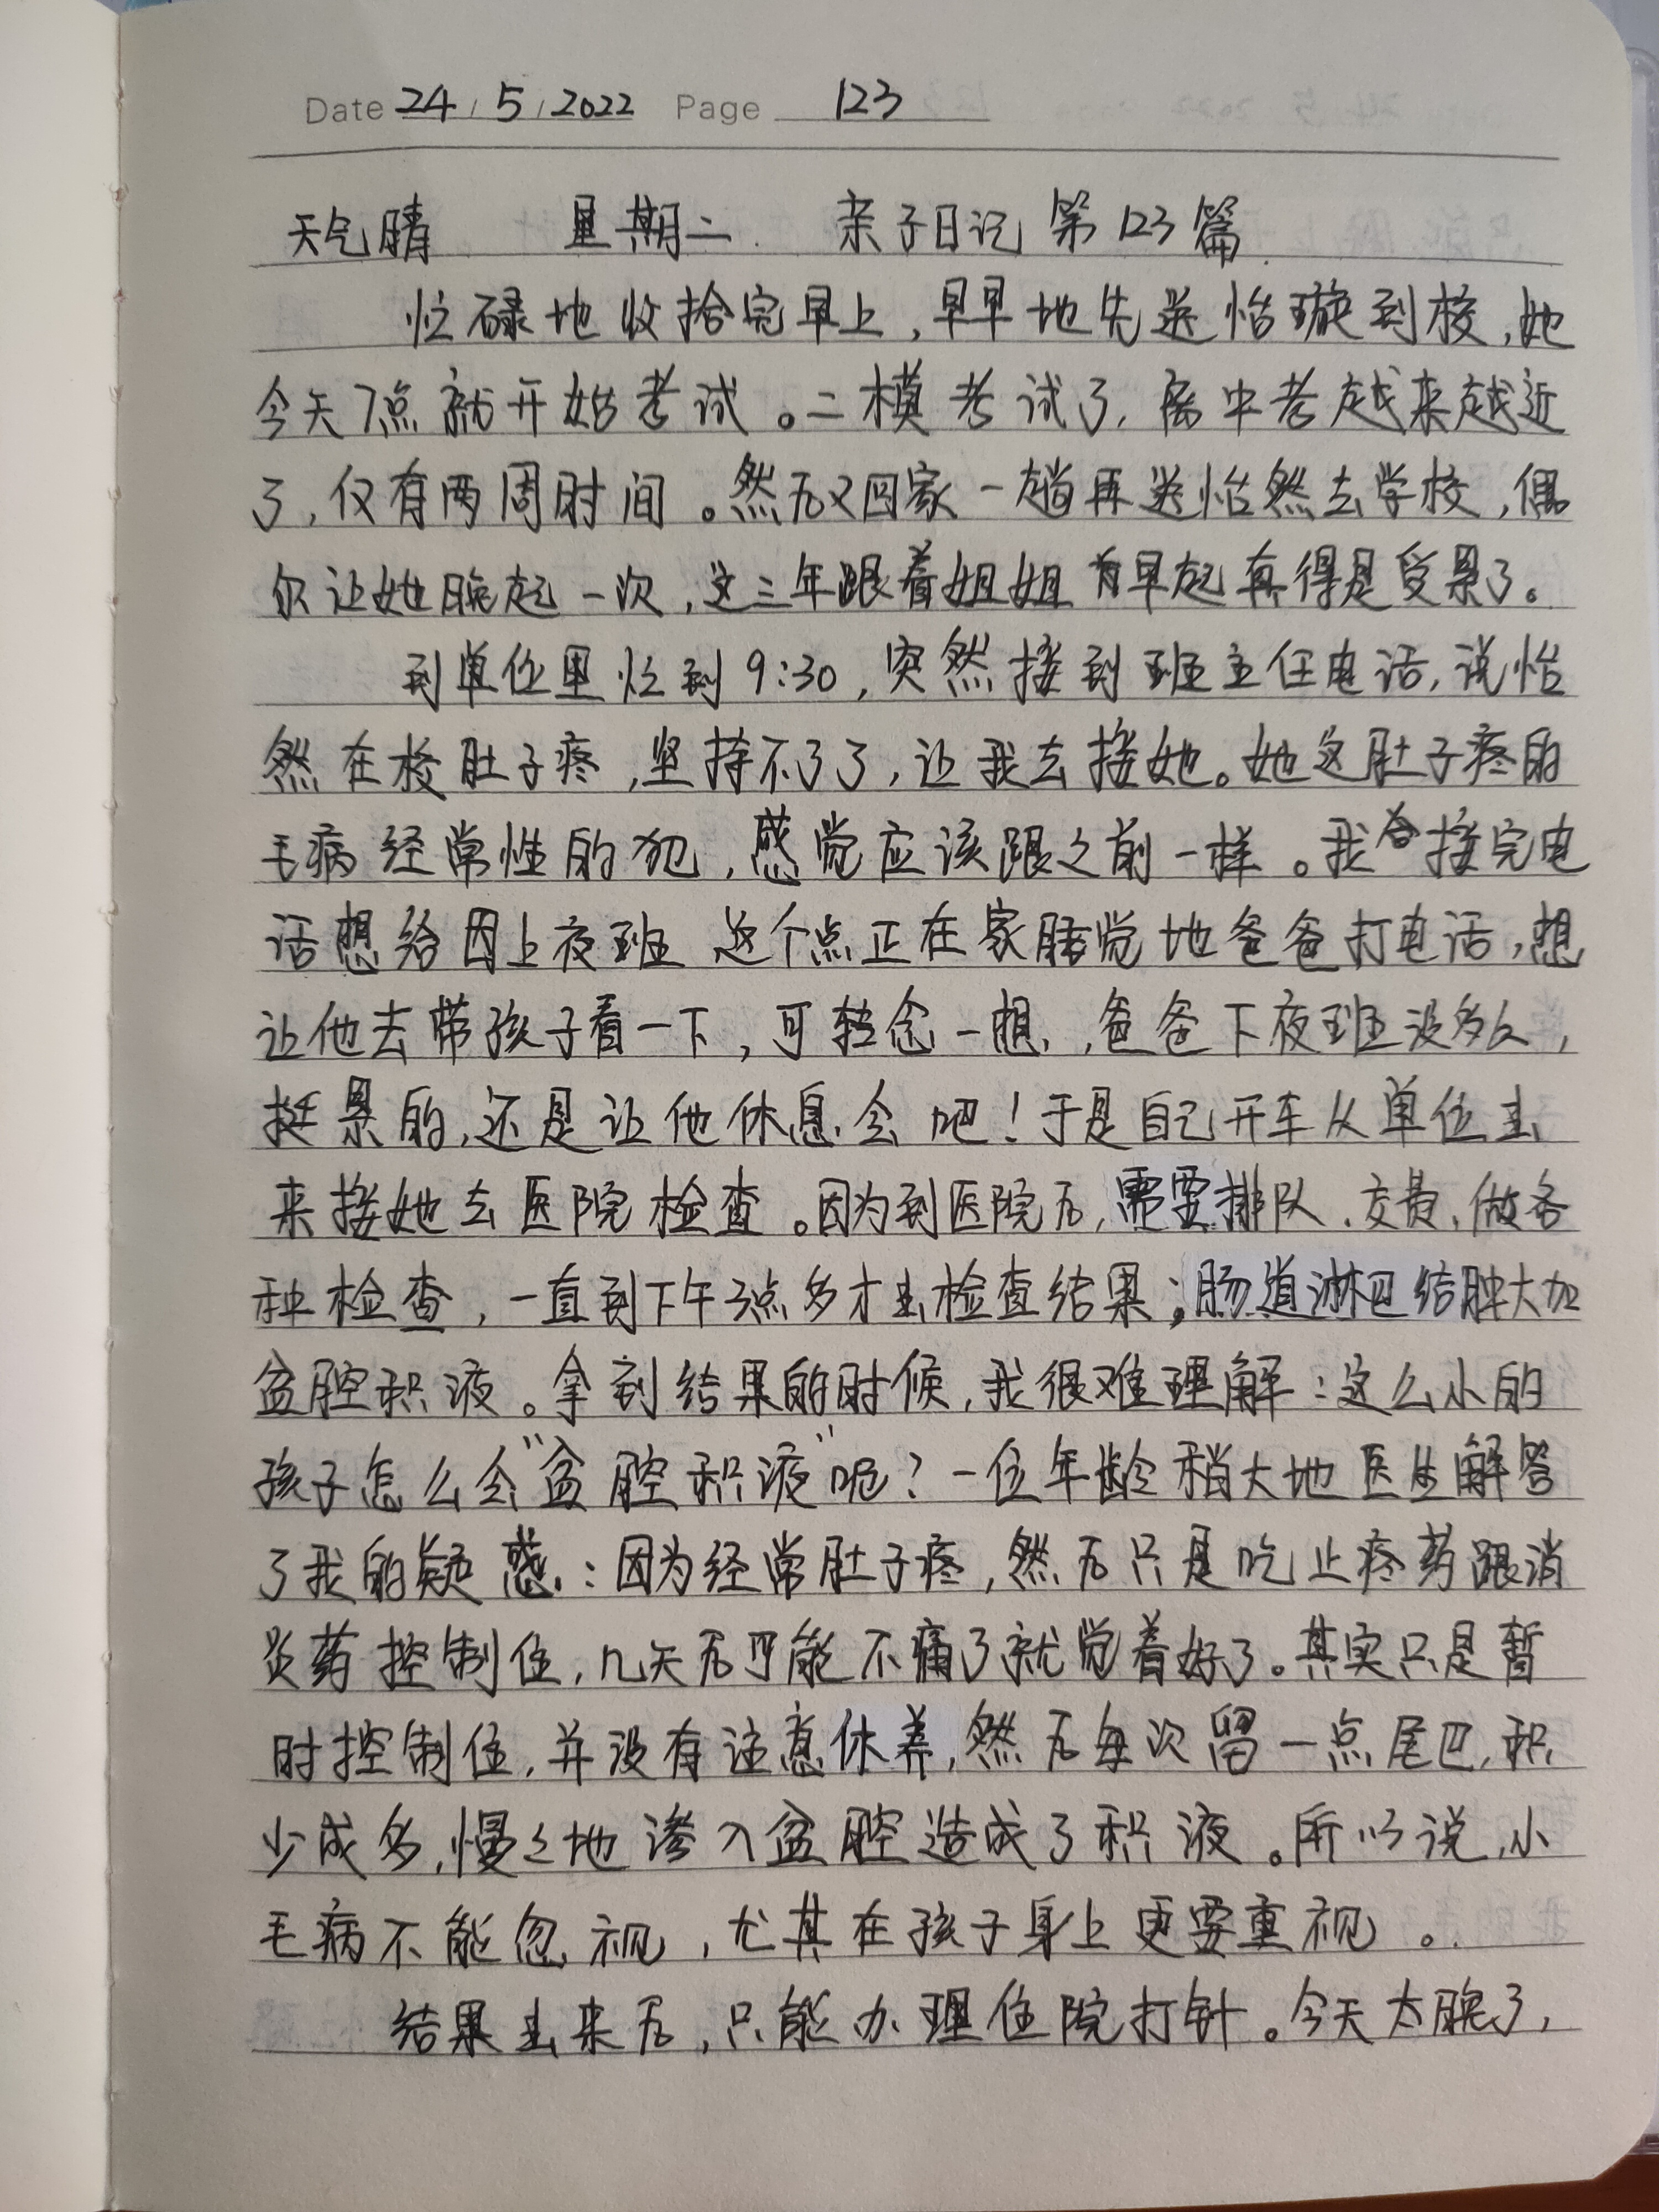 Date 24 / 5 / 2022 Page 123
天气晴 星期二 亲子日记第123篇
忙碌地收拾完早上,早早地先送怡璇到校,她
今天7点就开始考试。二模考试了,离中考越来越近
了,仅有两周时间。然后又回家一趟再送怡然去学校,偶
尔让她晚起一次,这三年跟着姐姐早起真得是受累了。
到单位里忙到9:30,突然接到班主任电话,说怡
然在校肚子疼,坚持不了了,让我去接她。她这肚子疼的
毛病经常性的犯,感觉应该跟之前一样。我接完电
话想给因上夜班 这个点正在家睡觉地爸爸打电话,想
让他去带孩子看一下,可转念一想,爸爸下夜班没多久,
挺累的,还是让他休息会吧!于是自己开车从单位出
来接她去医院检查。因为到医院后,需要排队、交费、做各
种检查,一直到下午3点多才出检查结果;肠道淋巴结肿大加
盆腔积液。拿到结果的时候,我很难理解:这么小的
孩子怎么会“盆腔积液”呢?一位年龄稍大地医生解答
了我的疑惑:因为经常肚子疼,然后只是吃止疼药跟消
炎药控制住,几天后可能不痛了就觉着好了。其实只是暂
时控制住,并没有注意休养,然后每次留一点尾巴,积
少成多,慢々地渗入盆腔造成了积液。所以说,小
毛病不能忽视,尤其在孩子身上更要重视。
结果出来后,只能办理住院打针。今天太晚了,